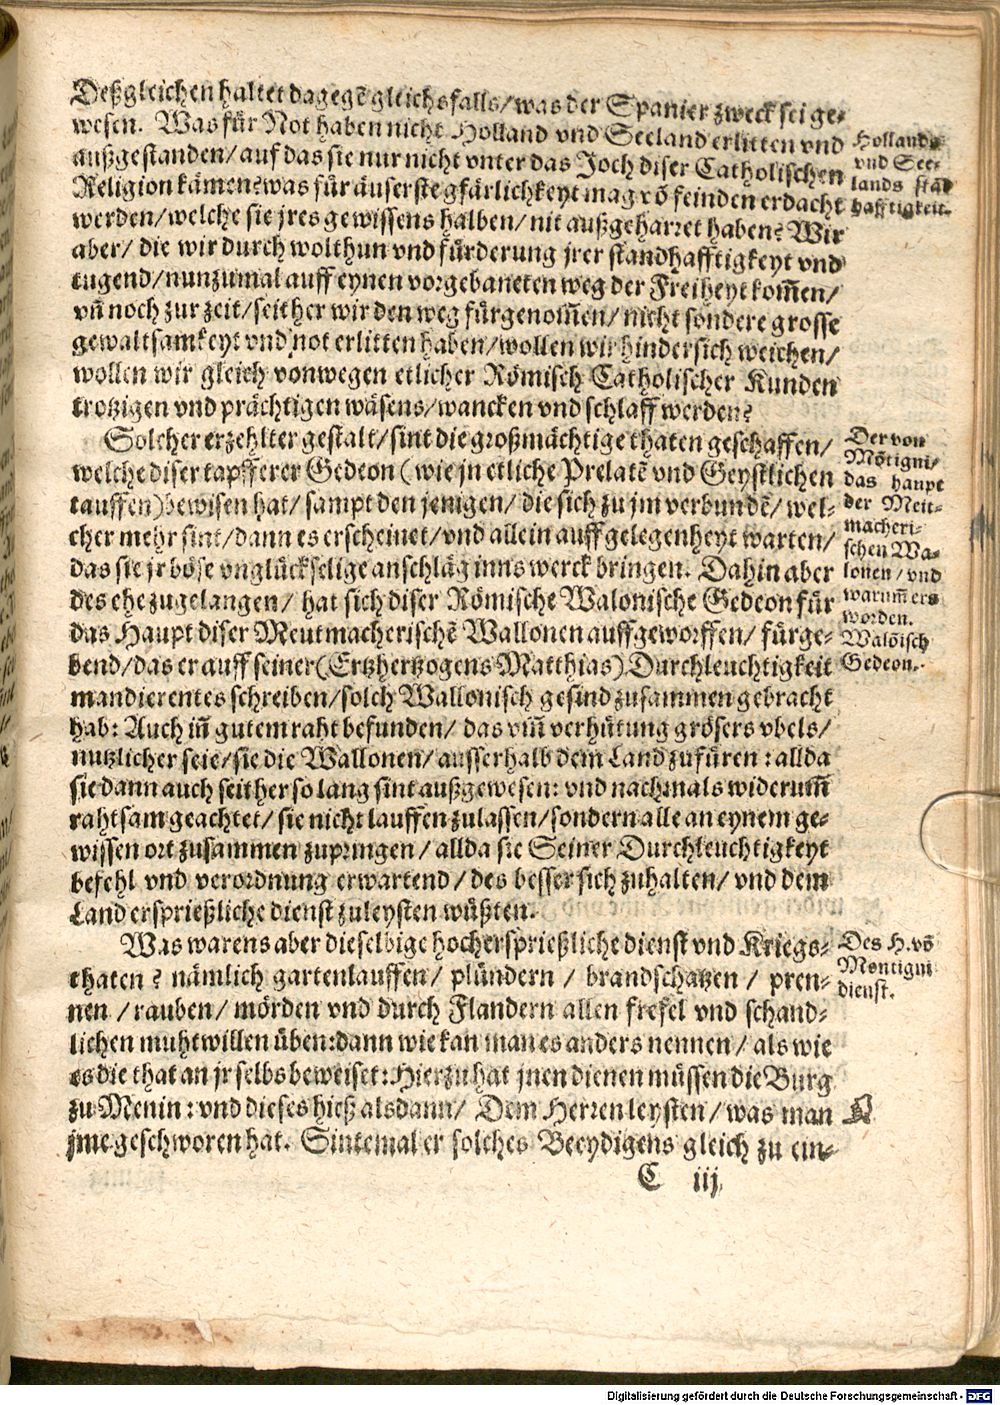 Deßgleichen haltet dagegẽ gleichsfalls/ was der Spanier zweck sei ge-
wesen. Was für Not haben nicht Holland vnd Seeland erlitten vnd
außgestanden/ auf das sie nur nicht vnter das Joch diser Catholischen
Religion kämen? was für äuserste gfärlichkeyt mag võ feinden erdacht
werden/ welche sie jres gewissens halben/ nit außgeharret haben? Wir
aber/ die wir durch wolthun vnd fürderung jrer standhafftigkeyt vnd
tugend/ nunzumal auff eynen vorgebaneten weg der Freiheyt kom̃en/
vñ noch zur zeit/ seither wir den weg fürgenom̃en/ nicht sondere grosse
gewaltsamkeyt vnd not erlitten haben/ wollen wir hindersich weichen/
wollen wir gleich vonwegen etlicher Römisch Catholischer Kunden
trotzigen vnd prächtigen wäsens/ wancken vnd schlaff werden?
Hollands
vnd See-
lands stãd
hafftigkeit.
Solcher erzehlter gestalt/ sint die großmächtige thaten geschaffen/
welche diser tapfferer Gedeon (wie jn etliche Prelatẽ vnd Geystlichen
tauffen) bewisen hat/ sampt den jenigen/ die sich zu jm verbundẽ/ wel-
cher mehr sint/ dann es erscheinet/ vnd allein auff gelegenheyt warten/
das sie jr böse vnglückselige anschläg inns werck bringen. Dahin aber
des ehe zugelangen/ hat sich diser Römische Walonische Gedeon für
das Haupt diser Meutmacherischẽ Wallonen auffgeworffen/ fürge-
bend/ das er auff seiner (Ertzhertzogens Matthias) Durchleuchtigkeit
mandierent es schreiben/ solch Wallonisch gesind zusammen gebracht
hab: Auch im̃ gutem raht befunden/ das vm̃ verhütung grösers vbels/
nutzlicher seie/ sie die Wallonen/ ausserhalb dem Land zufüren: allda
sie dann auch seither so lang sint außgewesen: vnd nachmals widerum̃
rahtsam geachtet/ sie nicht lauffen zulassen/ sondern alle an eynem ge-
wissen ort zusammen zupringen/ allda sie Seiner Durchleuchtigkeyt
befehl vnd verordnung erwartend/ des besser sich zuhalten/ vnd dem
Land ersprießliche dienst zuleysten wüßten.
Der von
Mõtigni/
das haupt
der Meit-
macheri-
schen Wa-
lonen/ vnd
warum̃ ers
worden.
Walõisch
Gedeon.
Was warens aber dieselbige hochersprießliche dienst vnd Kriegs-
thaten? nämlich gartenlauffen/ plündern/ brandschatzen/ pren-
nen/ rauben/ mörden vnd durch Flandern allen frefel vnd schand-
lichen muhtwillen üben: dann wie kan man es anders nennen/ als wie
es die that an jr selbs beweiset: Hierzu hat jnen dienen müssen die Burg
zu Menin: vnd dieses hieß alsdann/ Dem Herren leysten/ was man
jme geschworen hat. Sintemal er solches Beeydigens gleich zu ein-
Des H. võ
Montigni
dienst.
C iij
Digitalisierung gefördert durch die Deutsche Forschungsgemeinschaft - DFG